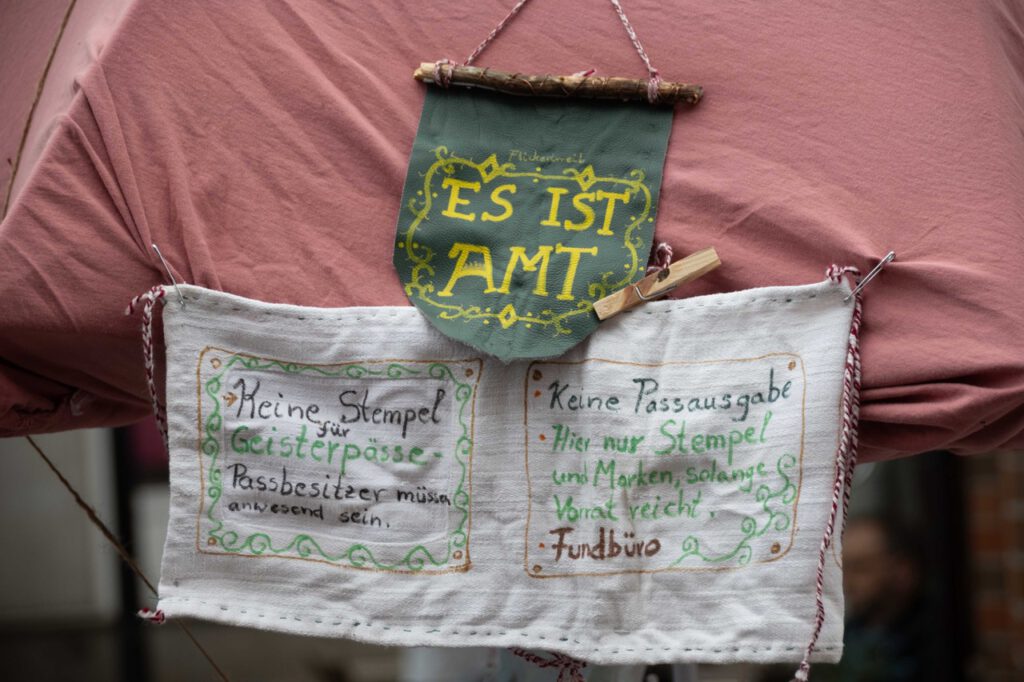 Flickenweib
ES IST
AMT
Keine Stempel
für
Geisterpässe-
Passbesitzer müssen
anwesend sein.
Keine Passausgabe
Hier nur Stempel
und Marken, solange
Vorrat reicht.
Fundbüro